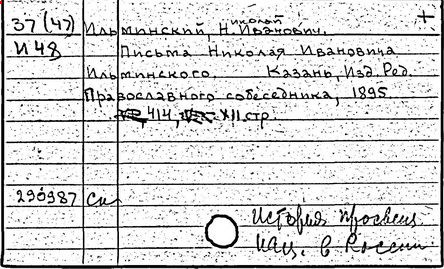 37(47) Ильминский, Николай Иванович.
И48 Письма Николая Ивановича
Ильминского. Казань, Изд. Ред.
Православного собеседника, 1895.
414, XII стр.
290987
История просвещ.
нац. в России